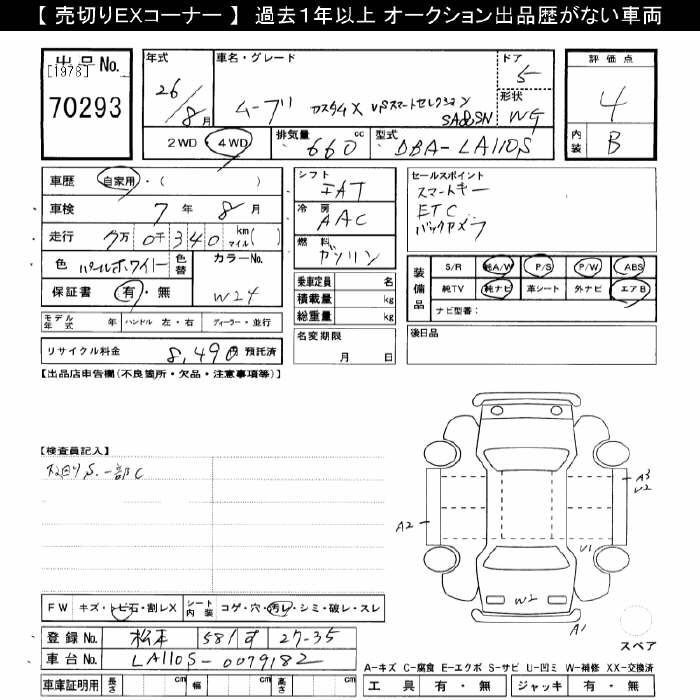 【 売切りEXコーナー 】 過去１年以上 オークション出品歴がない車両
出品 No.
[1978]
70293
年式
26 / 8 月
車名・グレード
ムーブ カスタムX VSスマートセレクション SA&SN
ドア
5
形状
WG
2WD・4WD
排気量
660 cc
型式
DBA-LA110S
評価点
4
内装
B
車歴 自家用・( )
車検 7 年 8 月
走行 7万 0千 3 4 0 km マイル( )
色 パールホワイトー
色替
カラーNo.
W24
保証書 有・無
モデル年式 年 ハンドル 左・右 ディーラー・並行
リサイクル料金 8,490円 預託済
シフト
FAT
冷房
AAC
燃料
ガソリン
乗車定員 名
積載量 kg
総重量 kg
名変期限
月 日
セールスポイント
スマートキー
ETC
バックカメラ
装備品
S/R 純A/W P/S P/W ABS
純TV 純ナビ 革シート 外ナビ エアB
ナビ型番：
後日品
【出品店申告欄(不良箇所・欠品・注意事項等)】
【検査員記入】
下回りS.一部C
A3
U2
A2
U1
W2
A1
スペア
FW キズ・トビ石・割レX シート内装 コゲ・穴・汚レ・シミ・破レ・スレ
登録 No. 松本 581 す 27-35
車台 No. LA110S-0079182
車庫証明用 長さ cm 幅 cm 高さ cm
A-キズ C-腐食 E-エクボ S-サビ U-凹ミ W-補修 XX-交換済
工具 有・無 ジャッキ 有・無